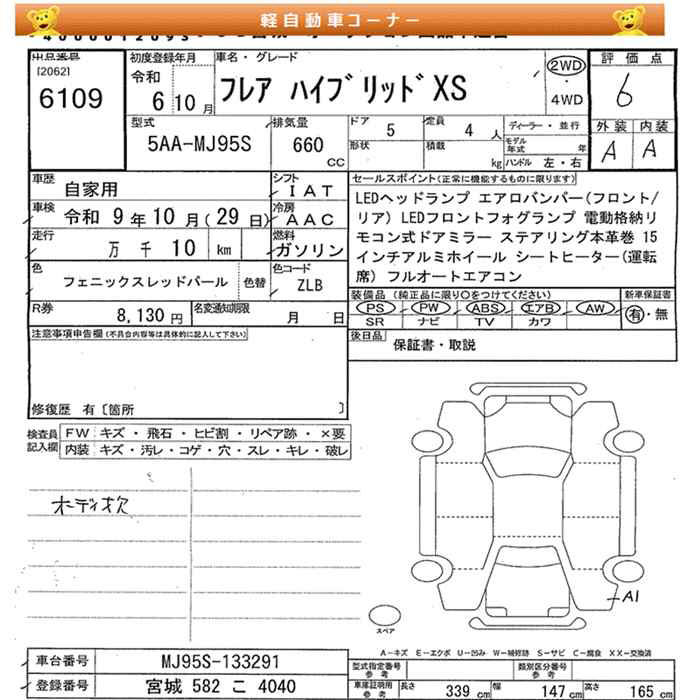 軽自動車コーナー
出品番号
[2062]
6109
初度登録年月
令和
6 10月
車名・グレード
フレア ハイブリッドXS
2WD
・
4WD
評価点
6
外装 内装
A A
型式
5AA-MJ95S
排気量
660
CC
ドア
5
形状
定員
4 人
積載
kg
ディーラー・並行
モデル年式 年
ハンドル 左・右
車歴
自家用
シフト
IAT
車検
令和 9年10月(29日)
冷房
AAC
走行
万 千 10 km
燃料
ガソリン
色
フェニックスレッドパール
色替
色コード
ZLB
R券
8,130円
名変通知期限
月 日
セールスポイント(正常に機能するものに限ります)
LEDヘッドランプ エアロバンパー(フロント/
リア) LEDフロントフォグランプ 電動格納リ
モコン式ドアミラー ステアリング本革巻 15
インチアルミホイール シートヒーター(運転
席) フルオートエアコン
装備品 (純正品に限り○をつけてください)
PS PW ABS エアB AW
SR ナビ TV カワ
新車保証書
有・無
後日品
保証書・取説
注意事項申告欄(不具合内容等は具体的に記入して下さい)
修復歴 有〔箇所 〕
検査員
記入欄
FW キズ・飛石・ヒビ割・リペア跡・×要
内装 キズ・汚レ・コゲ・穴・スレ・キレ・破レ
A1
スペア
A-キズ E-エクボ U-凹み W-補修跡 S-サビ C-腐食 XX-交換済
車台番号
MJ95S-133291
登録番号
宮城 582 こ 4040
型式指定番号
参考
類別区分番号
参考
車庫証明用
参考
長さ 339 cm
幅 147 cm
高さ 165 cm